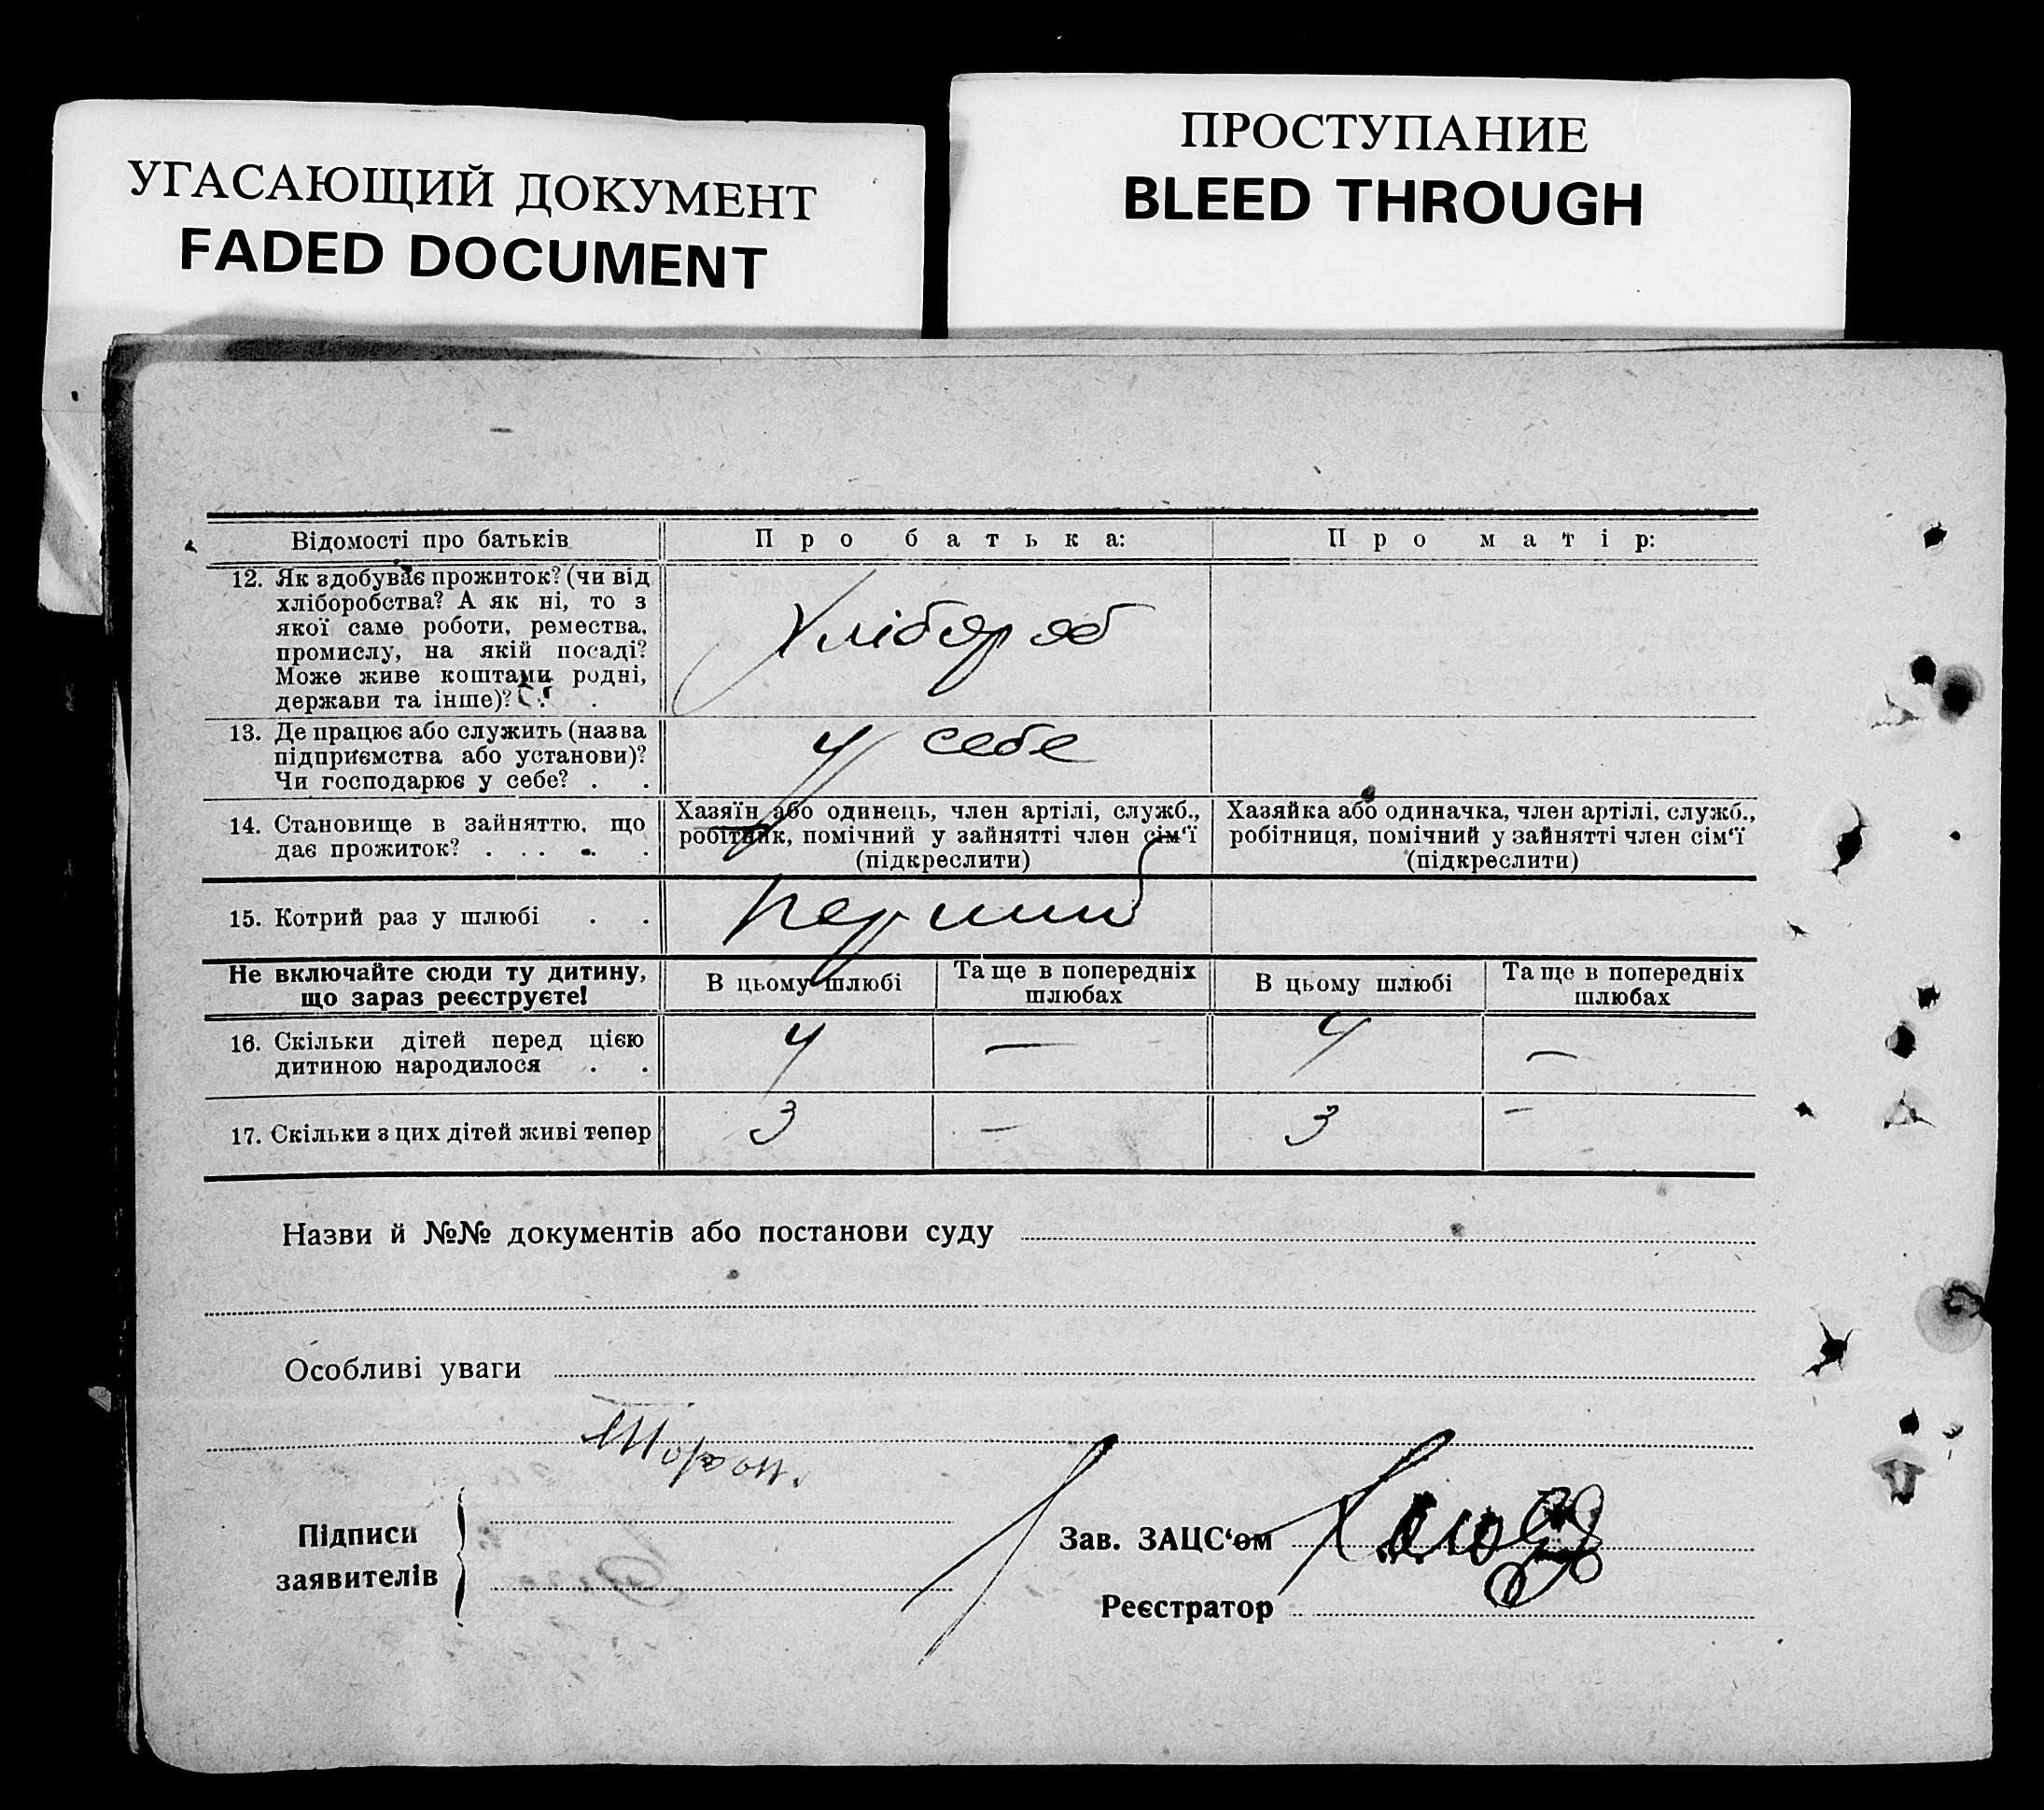 УГАСАЮЩИЙ ДОКУМЕНТ
FADED DOCUMENT
ПРОСТУПАНИЕ
BLEED THROUGH
Відомості про батьків Про батька: Про матір:
12. Як здобуває прожиток? (чи від
хліборобства? А як ні, то з
якої саме роботи, ремества,
промислу, на якій посаді?
Може живе коштами родні,
держави та інше)? .
Хлібороб
13. Де працює або служить (назва
підприємства або установи)?
Чи господарює у себе? . .
у себе
14. Становище в зайняттю, що
дає прожиток? . . . . .
Хазяїн або одинець, член артілі, служб.,
робітник, помічний у зайнятті член сім'ї
(підкреслити)
Хазяйка або одиначка, член артілі, служб.,
робітниця, помічний у зайнятті член сім'ї
(підкреслити)
15. Котрий раз у шлюбі . .
перший
Не включайте сюди ту дитину,
що зараз реєструєте!
В цьому шлюбі
Та ще в попередніх
шлюбах
В цьому шлюбі
Та ще в попередніх
шлюбах
16. Скільки дітей перед цією
дитиною народилося . .
4 — 4 —
17. Скільки з цих дітей живі тепер 3 — 3 —
Назви й №№ документів або постанови суду
Особливі уваги
Підписи
заявителів
Зав. ЗАЦС'ом
Реєстратор